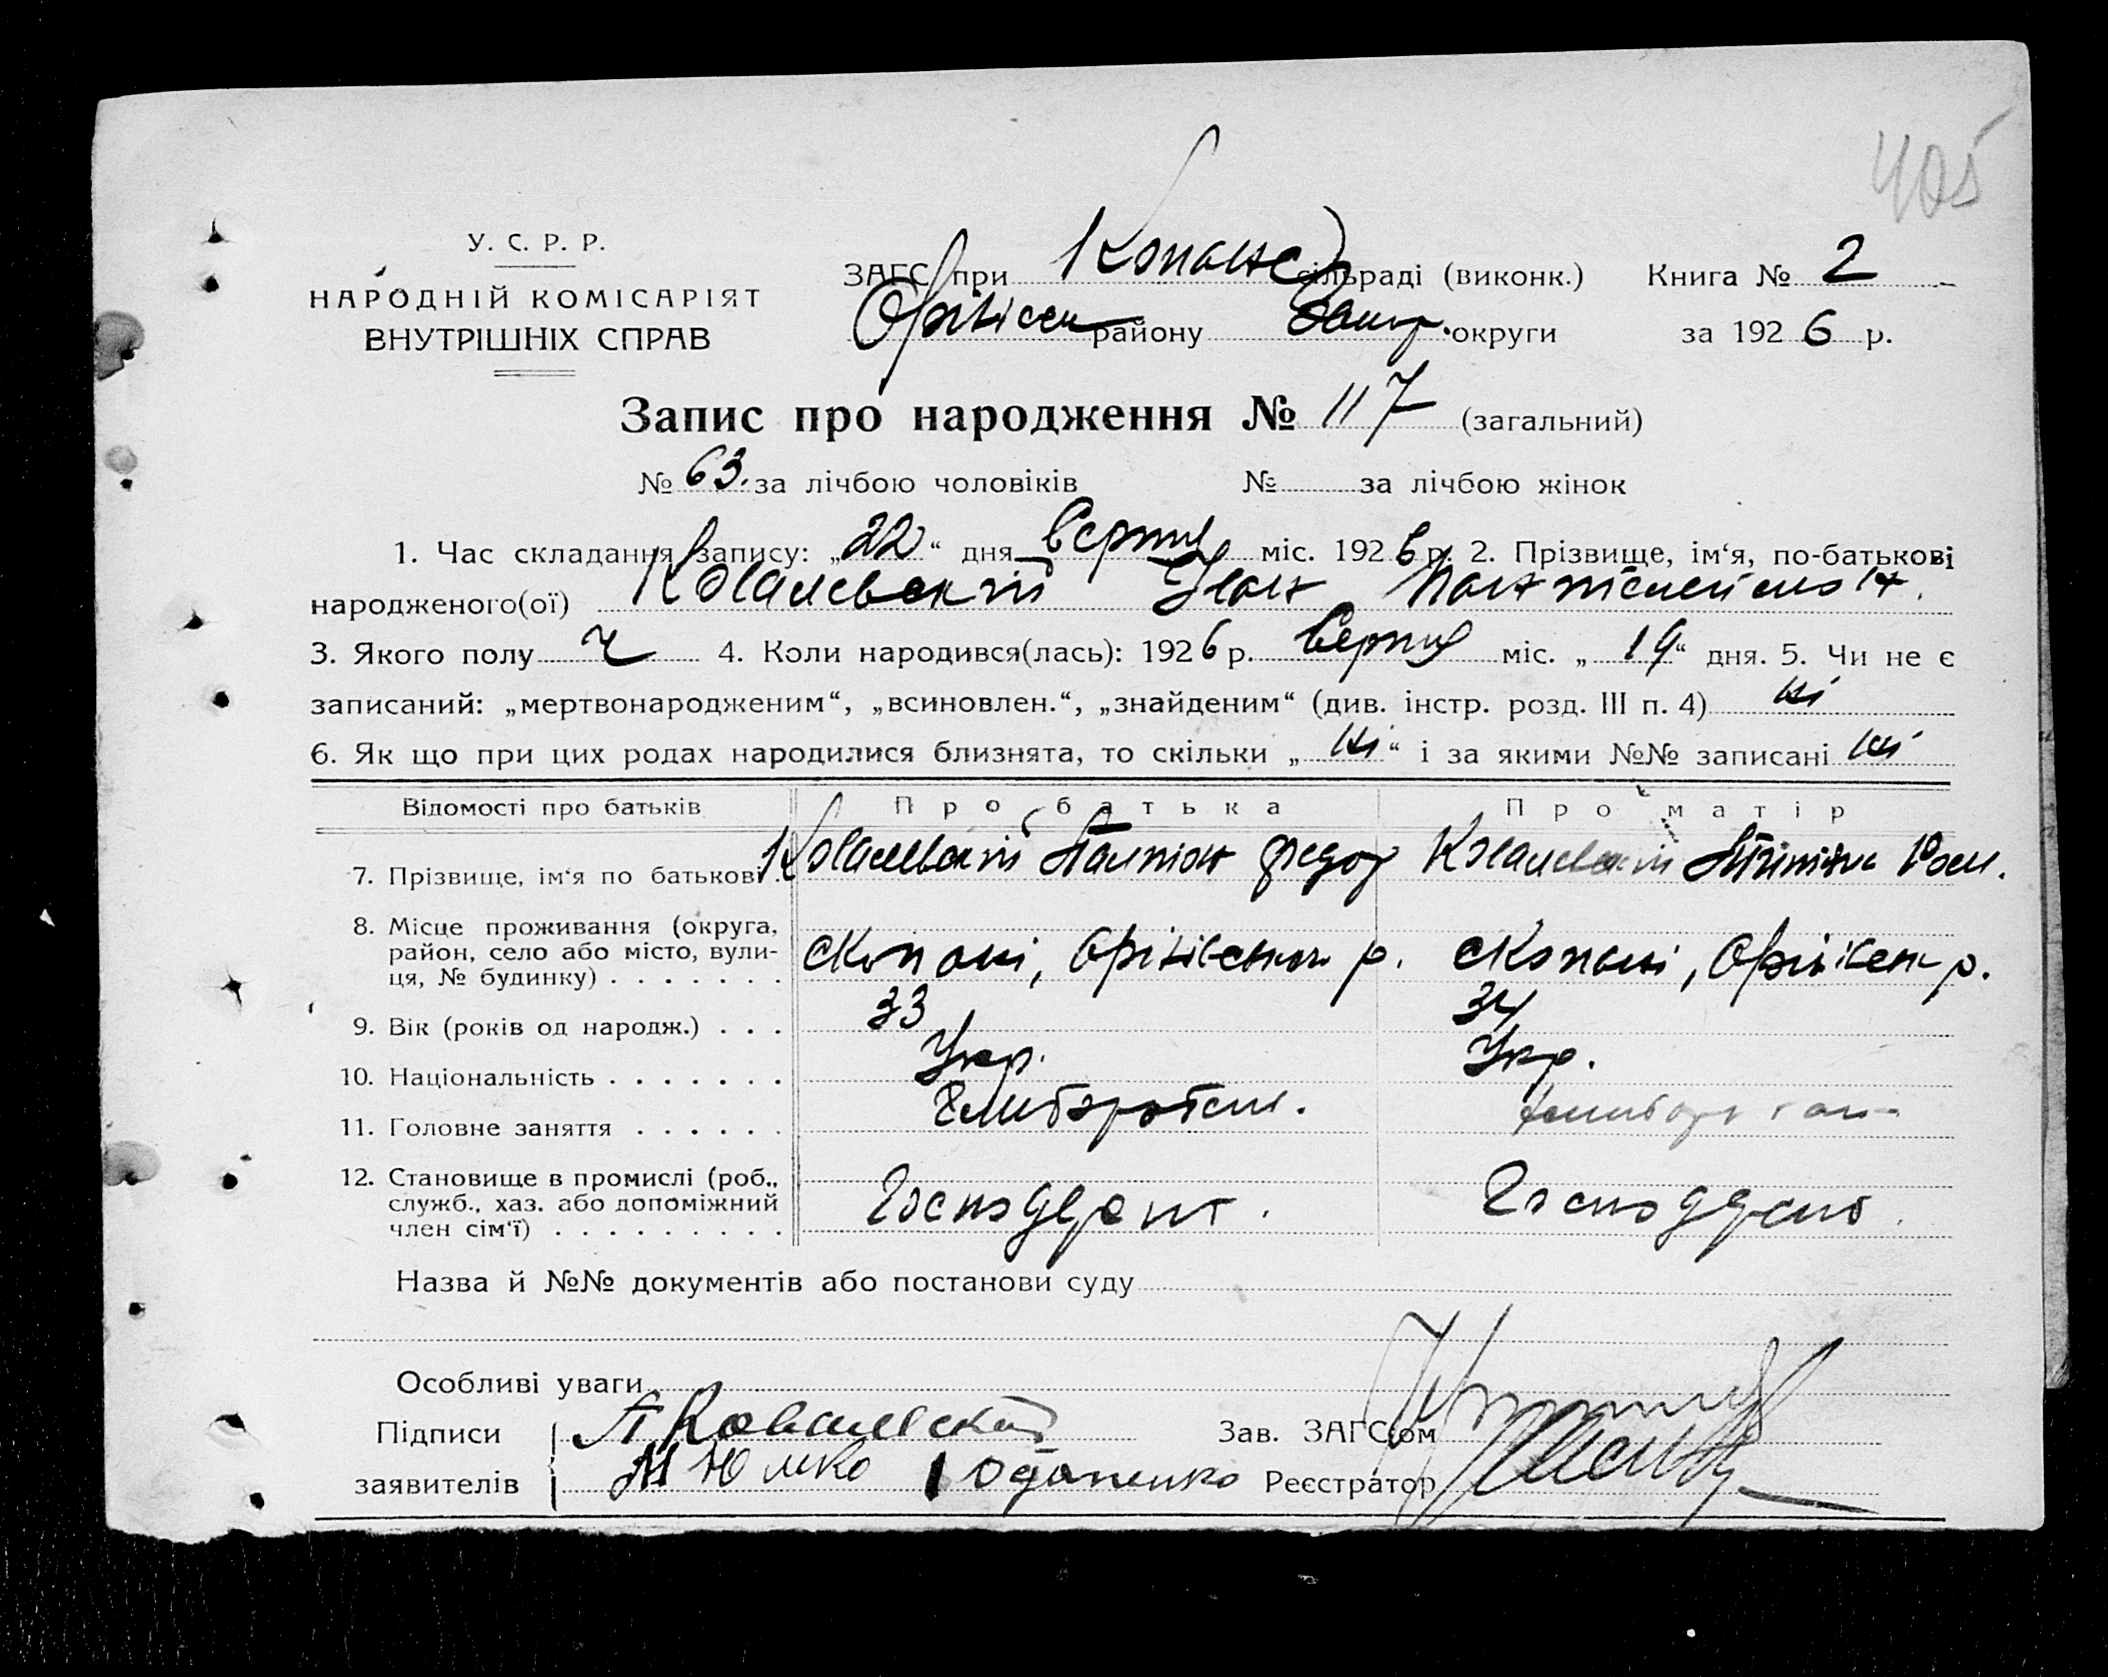 405
У. С. Р. Р.
НАРОДНІЙ КОМІСАРІЯТ
ВНУТРІШНІХ СПРАВ
ЗАГС при Копансь сільраді (виконк.) Книга № 2
Оріхівськ району Запор. округи за 1926 р.
Запис про народження № 117 (загальний)
№ 63. за лічбою чоловіків № за лічбою жінок
1. Час складання запису: „22“ дня Серпня міс. 1926 р. 2. Прізвище, ім‘я, по-батькові
народженого(ої) Ковалевський Іван
3. Якого полу Ч 4. Коли народився(лась): 1926 р. Серпня міс. „19“ дня. 5. Чи не є
записаний: „мертвонародженим“, „всиновлен.“, „знайденим“ (див. інстр. розд. III п. 4) ні
6. Як що при цих родах народилися близнята, то скільки „ні“ і за якими №№ записані ні
Відомості про батьків Про батька Про матір
7. Прізвище, ім‘я по батькові . Ковалевський Федор Ковалевській
8. Місце проживання (округа, район, село або місто, вулиця, № будинку) . . . . . . . с Копані, Оріхівського р. с Копані, Оріхівськ р.
9. Вік (років од народж.) . . . 33 34
10. Національність . . . . . . . Укр. Укр.
11. Головне заняття . . . . . . Хліборобст.
12. Становище в промислі (роб., служб., хаз. або допоміжний член сім‘ї) . . . . . . . . . Господар
Назва й №№ документів або постанови суду
Особливі уваги
Підписи П Ковалевский Зав. ЗАГС‘ом
заявителів М Юшко Реєстратор